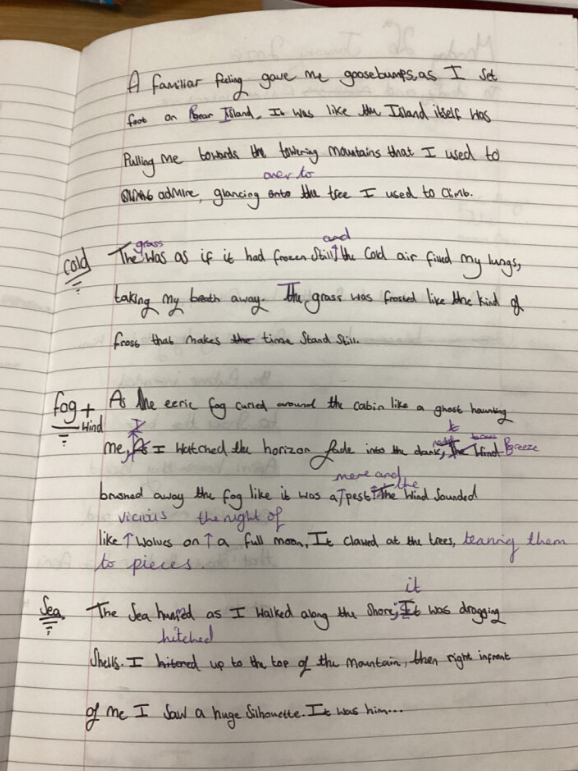 A familiar feeling gave me goosebumps, as I set
foot on Bear Island. It was like the Island itself was
Pulling me towards the towering mountains that I used to
over to
admire, glancing onto the tree I used to climb.
grass and
cold The was as if it had frozen still, the cold air filled my lungs,
taking my breath away. The grass was frosted like the kind of
frost that makes the time stand still.
fog + As the eerie fog curled around the cabin like a ghost haunting
wind I
me, As I watched the horizon fade into the dark, the wind Breeze
mere and the
brushed away the fog like it was a pest. The wind sounded
vicious the night of
like wolves on a full moon, It clawed at the trees, tearing them
to pieces
it
Sea The Sea as I walked along the Shore, It was dragging
hitched
Shells. I up to the top of the mountain, then right infront
of me I saw a huge Silhouette. It was him...